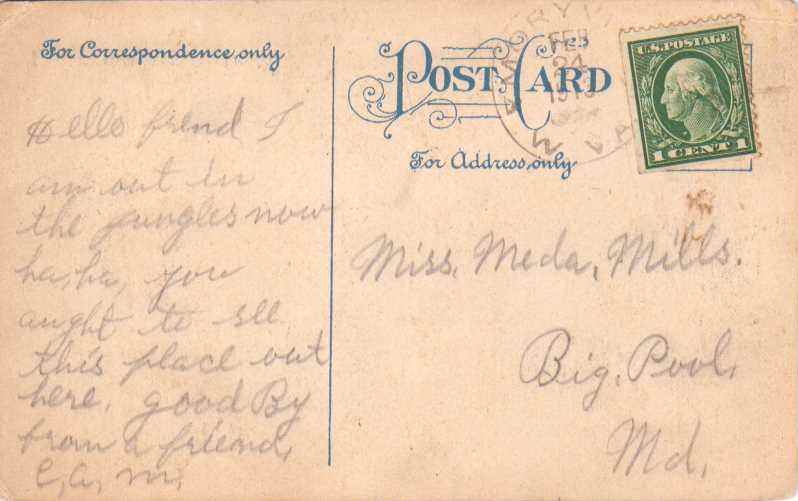 For Correspondence only
POST CARD
For Address, only
FEB
24
U.S. POSTAGE
1 CENT 1
Hello frend I
am out in
the jungles now
ha, ha, you
aught to see
this place out
here. good By
from a friend,
C, A, M,
Miss. Meda, Mills.
Big, Pool,
Md,